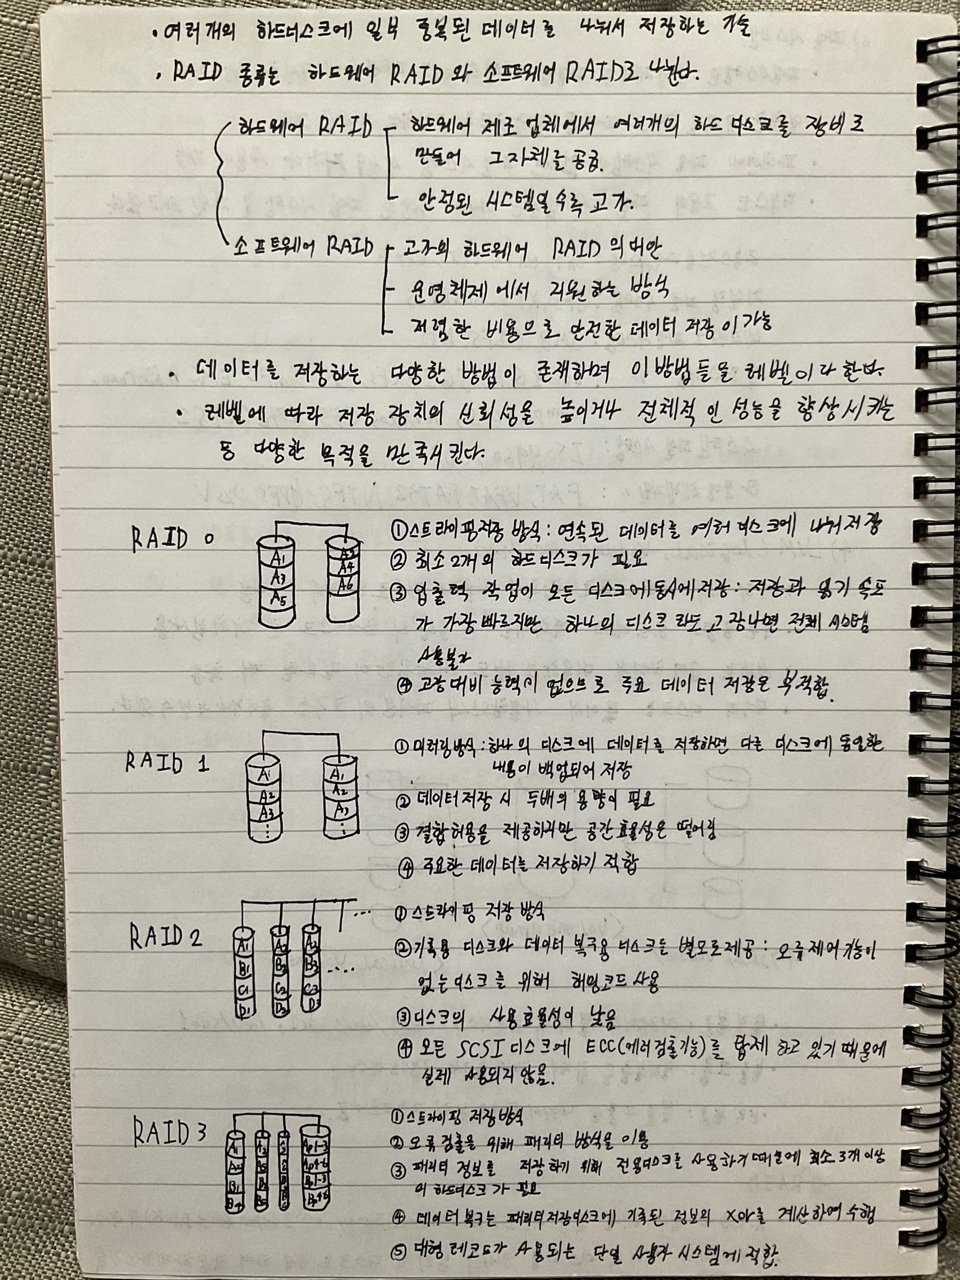 • 여러개의 하드디스크에 일부 중복된 데이터를 나눠서 저장하는 기술
• RAID 종류는 하드웨어 RAID와 소프트웨어 RAID로 나뉜다.
하드웨어 RAID 하드웨어 제조 업체에서 여러개의 하드디스크를 장비로
만들어 그자체를 공급.
안정된 시스템일수록 고가.
소프트웨어 RAID 고가의 하드웨어 RAID의 대안
운영체제에서 지원하는 방식
저렴한 비용으로 안전한 데이터 저장이 가능
• 데이터를 저장하는 다양한 방법이 존재하며 이 방법들을 레벨이다 한다.
• 레벨에 따라 저장 장치의 신뢰성을 높이거나 전체적인 성능을 향상시키는
등 다양한 목적을 만족시킨다.
RAID 0
A1 A2
A3 A4
A5 A6
①스트라이핑저장 방식: 연속된 데이터를 여러 디스크에 나눠저장
② 최소 2개의 하드디스크가 필요
③ 입출력 작업이 모든 디스크에 동시에저장: 저장과 읽기 속도
가 가장 빠르지만 하나의 디스크라도 고장나면 전체 시스템
사용불가
④ 고장대비 능력이 없으므로 주요 데이터 저장은 부적합.
RAID 1
A1 A1
A2 A2
A3 A3
⋮ ⋮
① 미러링방식: 하나의 디스크에 데이터를 저장하면 다른 디스크에 동일한
내용이 백업되어 저장
② 데이터저장 시 두배의 용량이 필요
③ 결함허용을 제공하지만 공간효율성은 떨어짐
④ 주요한 데이터를 저장하기 적합
RAID 2
...
A1 A2 A3
B1 B2 B3 ....
C1 C2 C3
D1 D2 D3
① 스트라이핑 저장 방식
②기록용 디스크와 데이터 복구용 디스크를 별도로제공: 오류제어기능이
없는디스크를 위해 해밍코드 사용
③디스크의 사용효율성이 낮음
④ 모든 SCSI 디스크에 ECC(에러검출기능)를 탑제 하고 있기 때문에
실제 사용되지 않음.
RAID 3
①스트라이핑 저장방식
② 오류검출을 위해 패리티 방식을 이용
③ 패리티 정보를 저장하기 위해 전용디스크를 사용하기때문에 최소 3개이상
의 하드디스크가 필요
④ 데이터복구는 패리티저장디스크에 기록된 정보의 XOR를 계산하여 수행
⑤ 대형 레코드가 사용되는 단일 사용자 시스템에 적합.